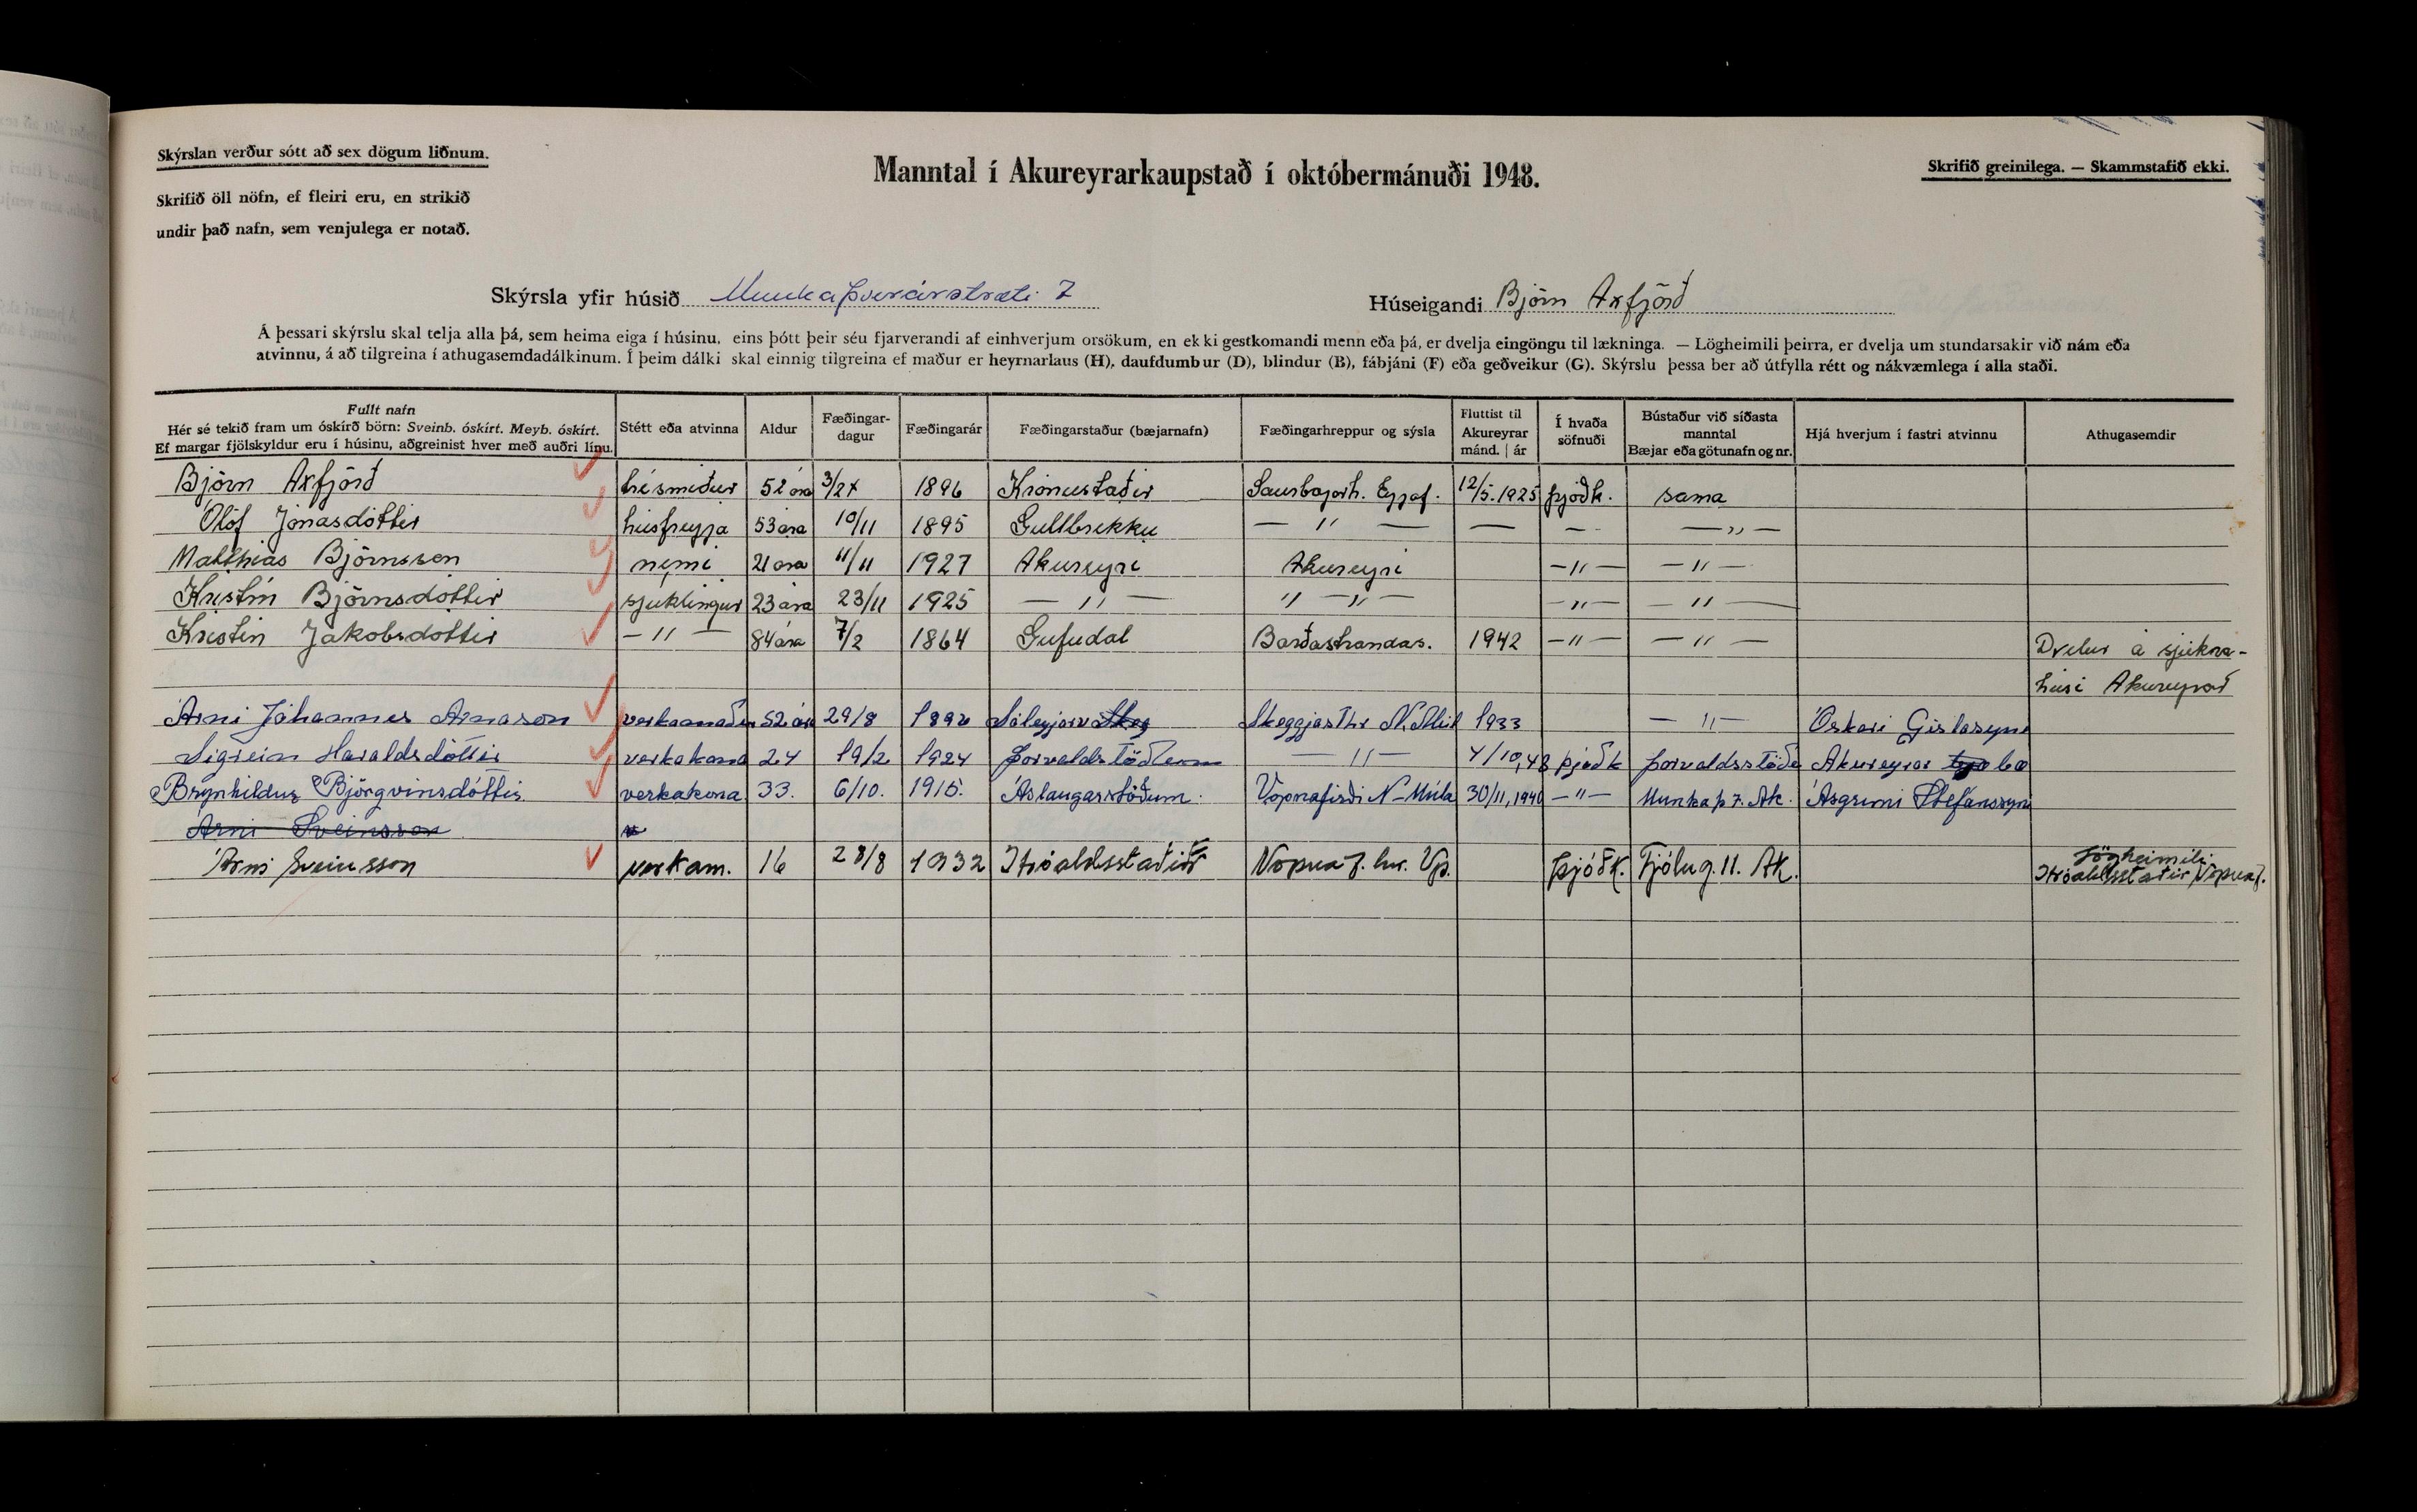 Skýrslan verður sótt að sex dögum liðnum.
Skrifið öll nöfn, ef fleiri eru, en strikið
undir það nafn, sem venjulega er notað.
Manntal í Akureyrarkaupstað í októbermánuði 1948.
Skrifið greinilega. — Skammstafið ekki.
Skýrsla yfir húsið Munkaþverárstræti 7
Húseigandi Björn Axfjörð
Á þessari skýrslu skal telja alla þá, sem heima eiga í húsinu, eins þótt þeir séu fjarverandi af einhverjum orsökum, en ekki gestkomandi menn eða þá, er dvelja eingöngu til lækninga. — Lögheimili þeirra, er dvelja um stundarsakir við nám eða
atvinnu, á að tilgreina í athugasemdadálkinum. Í þeim dálki skal einnig tilgreina ef maður er heyrnarlaus (H), daufdumbur (D), blindur (B), fábjáni (F) eða geðveikur (G). Skýrslu þessa ber að útfylla rétt og nákvæmlega í alla staði.
Fullt nafn
Hér sé tekið fram um óskírð börn: Sveinb. óskírt. Meyb. óskírt.
Ef margar fjölskyldur eru í húsinu, aðgreinist hver með auðri línu.
Stétt eða atvinna
Aldur
Fæðingar-
dagur
Fæðingarár
Fæðingarstaður (bæjarnafn)
Fæðingarhreppur og sýsla
Fluttist til
Akureyrar
mánd. | ár
Í hvaða
söfnuði
Bústaður við síðasta
manntal
Bæjar eða götunafn og nr.
Hjá hverjum í fastri atvinnu
Athugasemdir
Björn Axfjörð trésmiður 52 ára 3/2 1896 Krónustaðir Saurbæjarh. Eyjaf. 12/5.1925 þjóðk. sama
Ólöf Jónasdóttir húsfreyja 53 ára 10/11 1895 Gullbrekku — " — — — — " —
Matthías Björnsson nemi 21 ára 11/11 1927 Akureyri Akureyri — " — — " —
Kristín Björnsdóttir sjúklingur 23 ára 23/11 1925 — " — " — " — — " — — " —
Kristín Jakobsdóttir — " — 84 ára 7/2 1864 Gufudal Barðastrandas. 1942 — " — — " — Dvelur á sjúkra-
húsi Akureyrar
Árni Jóhannes Árnason verkamaður 52 ára 29/8 1896 Skeggjast hr N.Múl 1933 — " — Óskari Gíslasyni
Sigrún Haraldsdóttir verkakona 24 19/2 1924 Þorvaldstöðum — " — 4/10,48 þjóðk Þorvaldsstöðu Akureyrar bæ
Brynhildur Björgvinsdóttir verkakona 33. 6/10. 1915. Áslaugarstöðum. Vopnafirði N-Múla 30/11,1940 — " — Munkaþ 7. Ak. Ásgrími Stefánssyni
Árni Sveinsson
Árni Sveinsson verkam. 16 28/8 1932 Hróaldsstaðir Vopnaf. hr. Vp. Þjóðk. Fjólug. 11. Ak. Lögheimili:
Hróaldsstaðir Vopnaf.